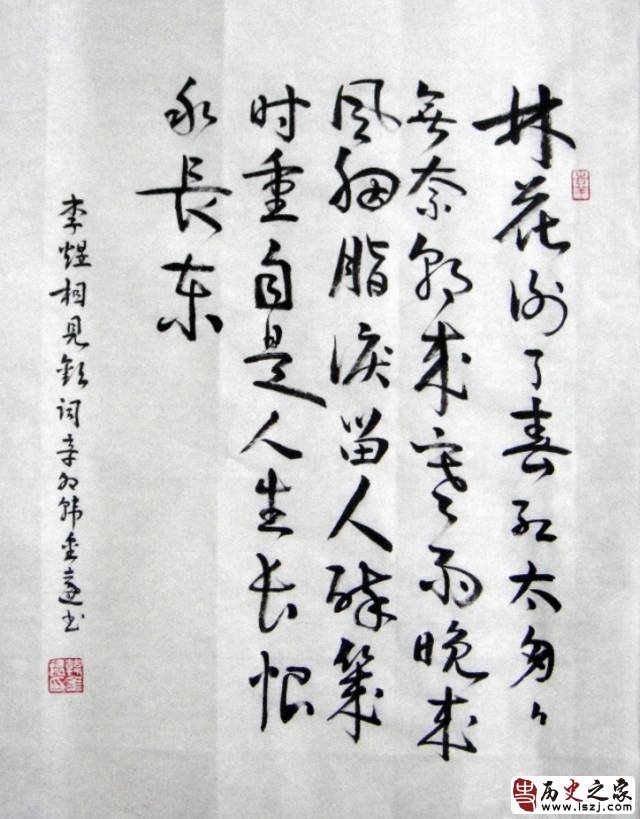 林花谢了春红太匆々
無奈朝来寒雨晚来
風胭脂淚留人醉幾
时重自是人生长恨
水長东
李煜相見歡词辛卯韩书
历史之家
www.lszj.com